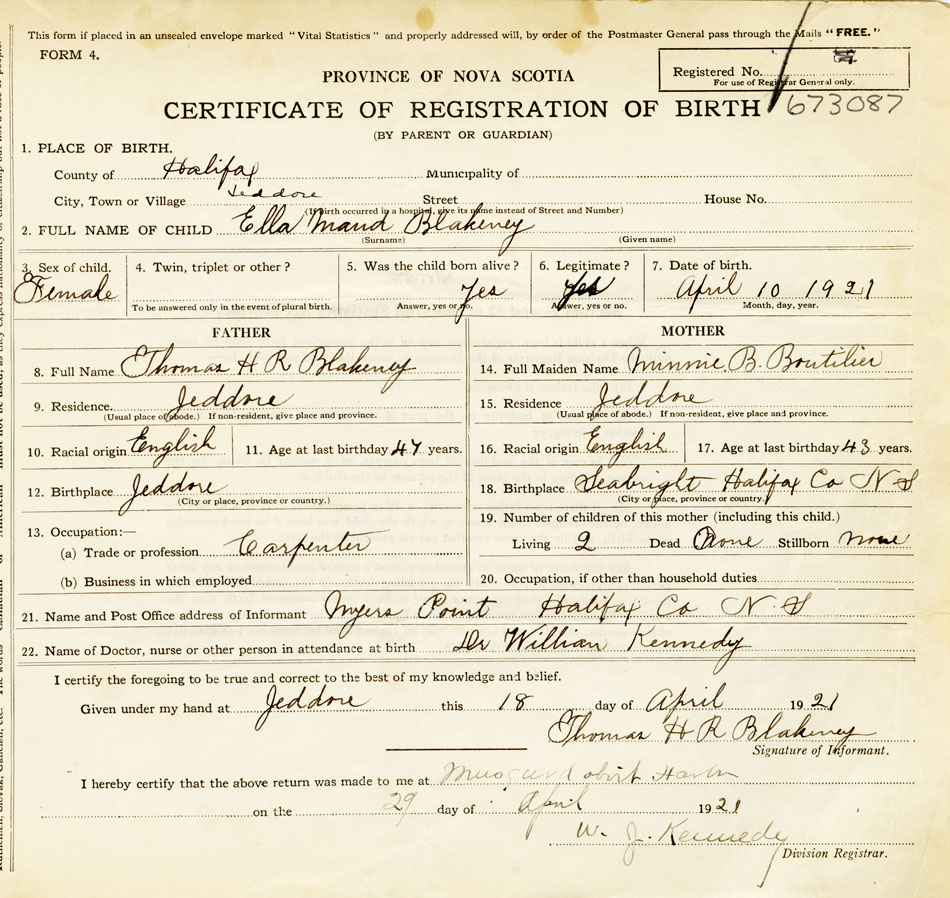 This form if placed in an unsealed envelope marked "Vital Statistics" and properly addressed will, by order of the Postmaster General pass through the Mails "FREE."
FORM 4.
PROVINCE OF NOVA SCOTIA
Registered No.
For use of Registrar General only.
CERTIFICATE OF REGISTRATION OF BIRTH 673087
(BY PARENT OR GUARDIAN)
1. PLACE OF BIRTH.
County of Halifax Municipality of
City, Town or Village Jeddore Street House No.
(If birth occurred in a hospital, give its name instead of Street and Number)
2. FULL NAME OF CHILD Ella Maud Blakeney
(Surname) (Given name)
3. Sex of child. 4. Twin, triplet or other? 5. Was the child born alive? 6. Legitimate? 7. Date of birth.
Female Yes Yes April 10 1921
To be answered only in the event of plural birth. Answer, yes or no. Answer, yes or no. Month, day, year.
FATHER MOTHER
8. Full Name Thomas H R Blakeney 14. Full Maiden Name Minnie B. Boutilier
9. Residence. Jeddore 15. Residence Jeddore
(Usual place of abode.) If non-resident, give place and province. (Usual place of abode.) If non-resident, give place and province.
10. Racial origin English 11. Age at last birthday 47 years. 16. Racial origin English 17. Age at last birthday 43 years.
12. Birthplace Jeddore 18. Birthplace Seabright Halifax Co N S
(City or place, province or country.) (City or place, province or country.)
13. Occupation:— 19. Number of children of this mother (including this child.)
(a) Trade or profession Carpenter Living 2 Dead None Stillborn none
(b) Business in which employed 20. Occupation, if other than household duties
21. Name and Post Office address of Informant Myers Point Halifax Co N S
22. Name of Doctor, nurse or other person in attendance at birth Dr William Kennedy
I certify the foregoing to be true and correct to the best of my knowledge and belief.
Given under my hand at Jeddore this 18 day of April 1921
Thomas H R Blakeney
Signature of Informant.
I hereby certify that the above return was made to me at
on the 29 day of April 1921
W. J. Kennedy
Division Registrar.